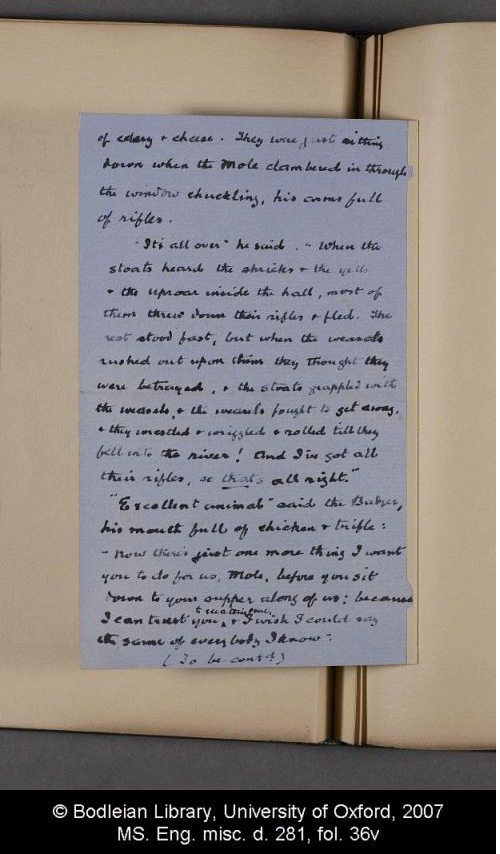 of celery & cheese. They were just sitting
down when the Mole clambered in through
the window chuckling, his arms full
of rifles.
"It's all over" he said. "When the
stoats heard the shrieks & the yells
& the uproar inside the hall, most of
them threw down their rifles & fled. The
rest stood fast, but when the weasels
rushed out upon them they thought they
were betrayed, & the stoats grappled with
the weasels, & the weasels fought to get away,
& they wrestled & wriggled & rolled till they
fell into the river! And I've got all
their rifles, so that's all right."
"Excellent animal" said the Badger,
his mouth full of chicken & trifle:
"Now there's just one more thing I want
you to do for us, Mole, before you sit
down to your supper along of us; because
to see a thing done,
I can trust you & I wish I could say
the same of everybody I know".
(To be contd)
© Bodleian Library, University of Oxford, 2007
MS. Eng. misc. d. 281, fol. 36v